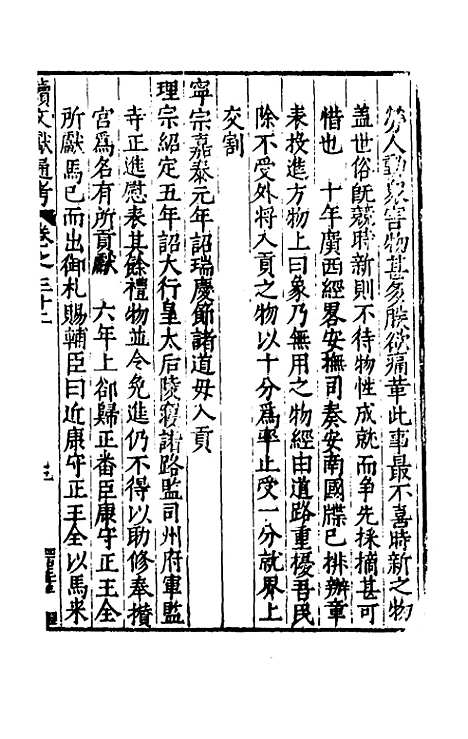 勞人動衆害物甚多朕欲痛革此事最不喜時新之物
蓋世俗旣競時新則不待物性成就而争先採摘甚可
惜也　十年廣西經畧安撫司奏安南國牒已排辦章
表投進方物上曰象乃無用之物經由道路重擾吾民
除不受外將入貢之物以十分爲率止受一分就界上
交割
寧宗嘉泰元年詔瑞慶節諸道毋入貢
理宗紹定五年詔大行皇太后陵寢諸路監司州府軍監
寺正進慰表其餘禮物並令免進仍不得以助修奉攢
宮爲名有所貢獻　六年上郤歸正番臣康守正王全
所獻馬已而出御札賜輔臣曰近康守正王全以馬来
續文獻通考　卷之三十二